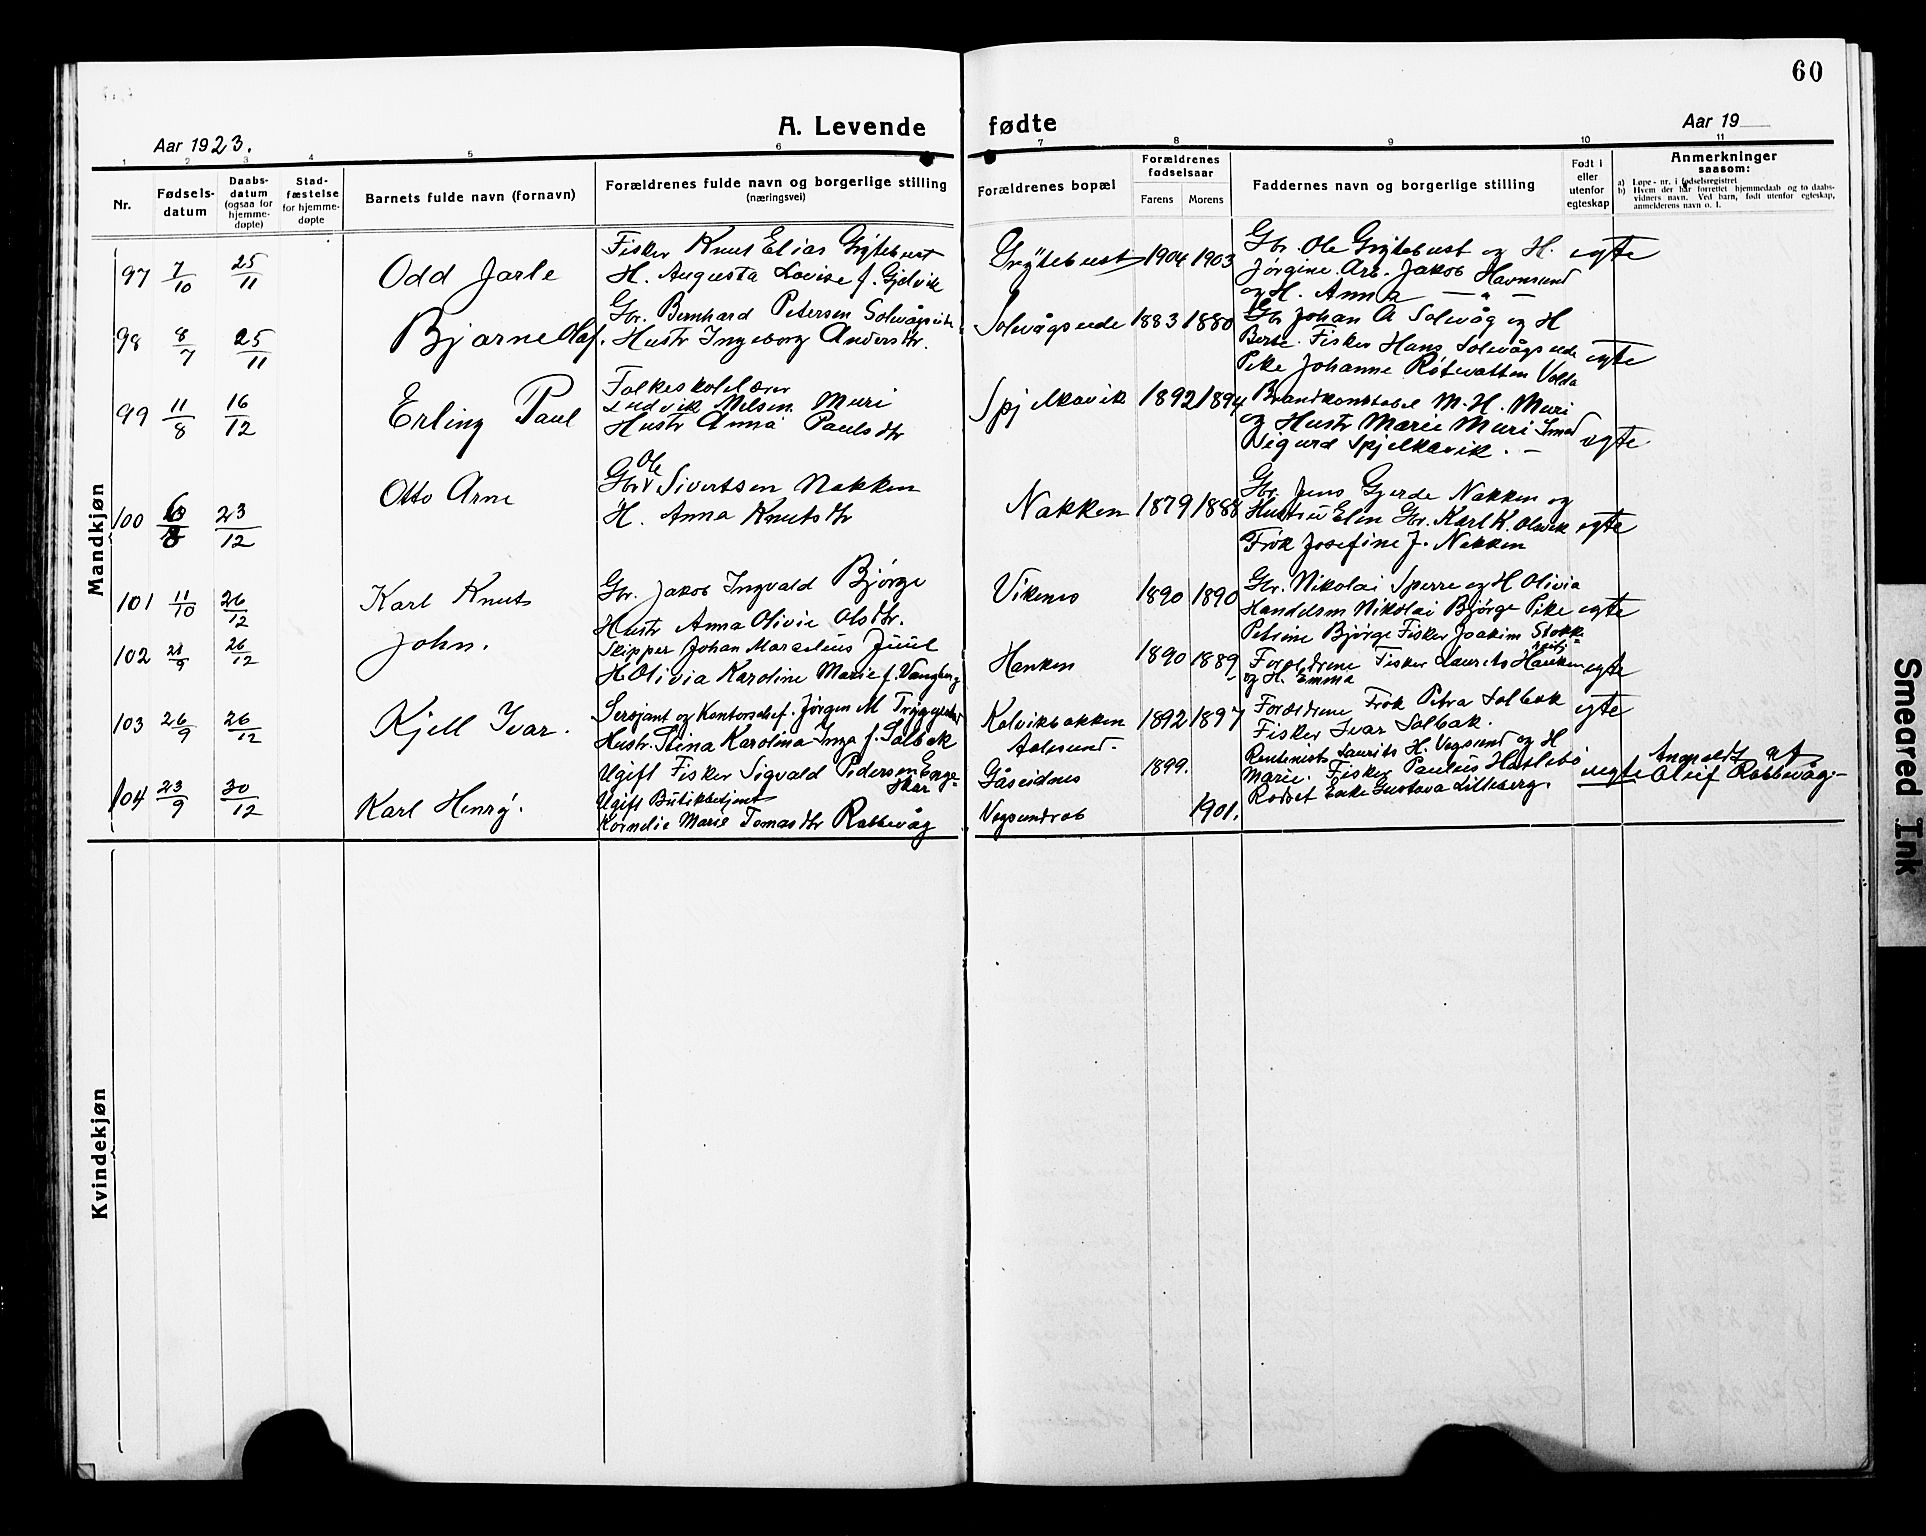 60
A. Levende fødte
Aar 1923.
Aar 19
1 2 3 4 5 6 7 8 9 10 11
Nr.
Fødsels-
datum
Daabs-
datum
(ogsaa for
hjemme-
døpte)
Stad-
fæstelse
for hjemme-
døpte
Barnets fulde navn (fornavn)
Forældrenes fulde navn og borgerlige stilling
(næringsvei)
Forældrenes bopæl
Forældrenes
fødselsaar
Farens Morens
Faddernes navn og borgerlige stilling
Født i
eller
utenfor
egteskap
Anmerkninger
saasom:
a) Løpe-nr. i fødselsregistret
b) Hvem der har forrettet hjemmedaab og to daabs-
vidners navn. Ved barn, født utenfor egteskap,
anmelderens navn o. l.
Mandkjøn
97 7/10 25/11 Odd Jarle
Fisker Knut Elias Grytebust
H. Augusta Lovise f. Gjelvik
Grytebust 1904 1903
Gbr. Ole Grytebust og H.
Jørgine. Arb. Jakob Havnsund
og H. Anna — " —
egte
98 8/7 25/11 Bjarne Olaf.
Gbr. Bernhard Petersen Solevågseide
Hustr Ingeborg Andersdtr.
Solevågseide 1883 1880
Gbr Johan A Solevåg og H
Berte. Fisker Hans Solevågseide
Pike Johanne Røtevatten Volda
egte
99 11/8 16/12 Erling Paul
Folkeskolelærer
Ludvik Nilsen Muri
Hustr Anna Paulsdtr
Spjelkavik 1892 1894
Brandkonstabel M. H. Muri
og Hustr Marie Muri Smed
Sigurd Spjelkavik. —
egte
100 6/8 23/12 Otto Arne
Gbr Ole Sivertsen Nakken
H. Anna Knutsdtr
Nakken 1879 1888
Gbr. Jens Gjerde Nakken og
Hustru Elen Gbr. Karl K. Olsvik
Frøk Josefine J. Nakken
egte
101 11/10 26/12 Karl Knut
Gbr. Jakob Ingvald Bjørge
Hustr Anna Olivie Olsdtr.
Vikenes 1890 1890
Gbr. Nikolai Sperre og H Olivia
Handelsm Nikolai Bjørge Pike
Petrine Bjørge Fisker Joakim Stokk-
egte
102 21/9 26/12 John.
Skipper Johan Marselius Juul
H Olivia Karoline Marie f. Vangberg
Hanken 1890 1889
Forældrene Fisker Laurits Hanken
og H. Emma
egte
103 26/9 26/12 Kjell Ivar.
Sersjant og Kontorschef. Jørgen M Tryggestad
Hustr. Stina Karolina Inga f. Solbak
Kolvikbakken
Aalesund.
1892 1897
Forældrene Frøk Petra Solbak
Fisker Ivar Solbak.
egte
104 23/9 30/12 Karl Henry.
Ugift Fisker Sigvald Pedersen Emge-
skar
Ugift Butikbetjent
Kornelie Marie Tomasdtr Rabbevåg
Gåseidnes 1899.
Vegsundrab 1901.
Rentenist Laurits H. Vegsund og H
Marie. Fisker Paulus Hatlebø
Rodset Enke Gustava Lilleberg.
uegte
Anmeldt af
Oluf Rabbevåg
Kvindekjøn
Smeared Ink